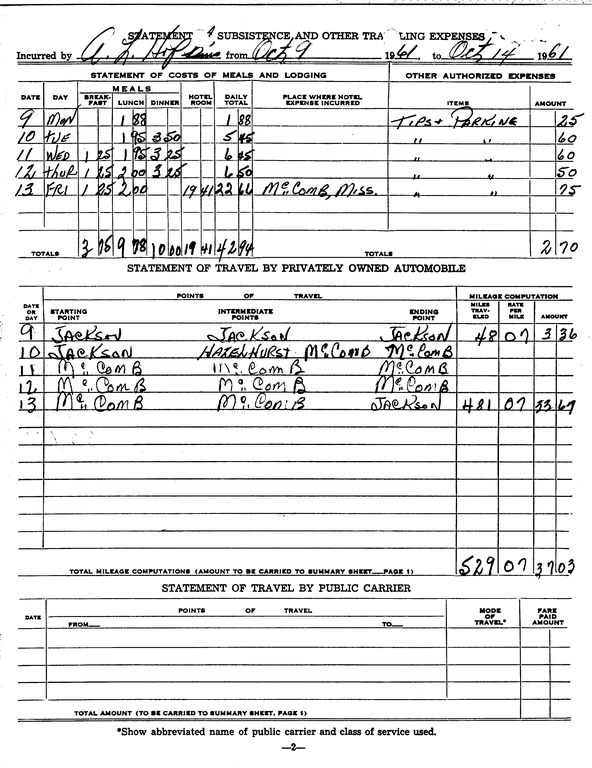 STATEMENT of SUBSISTENCE, AND OTHER TRA LING EXPENSES,
Incurred by A. L. Hopkins from Oct 9 1961, to Oct 14 1961
STATEMENT OF COSTS OF MEALS AND LODGING OTHER AUTHORIZED EXPENSES
DATE DAY MEALS BREAK-FAST LUNCH DINNER HOTEL ROOM DAILY TOTAL PLACE WHERE HOTEL EXPENSE INCURRED ITEMS AMOUNT
9 Mon 1 88 1 88 Tips & Parking 25
10 Tue 1 95 3 50 5 45 " " 60
11 Wed 1 25 1 95 3 25 6 45 " " 60
12 Thur 1 25 2 00 3 25 6 50 " " 50
13 Fri 1 25 2 00 19 41 22 66 McComb, Miss. " " 75
TOTALS 3 75 9 78 10 00 19 41 42 94 TOTALS 2 70
STATEMENT OF TRAVEL BY PRIVATELY OWNED AUTOMOBILE
DATE OR DAY POINTS OF TRAVEL MILEAGE COMPUTATION
STARTING POINT INTERMEDIATE POINTS ENDING POINT MILES TRAV-ELED RATE PER MILE AMOUNT
9 Jackson Jackson Jackson 48 07 3 36
10 Jackson Hazelhurst McComb McComb
11 McComb McComb McComb
12 McComb McComb McComb
13 McComb McComb Jackson 481 07 33 67
TOTAL MILEAGE COMPUTATIONS (AMOUNT TO BE CARRIED TO SUMMARY SHEET__PAGE 1) 529 07 37 03
STATEMENT OF TRAVEL BY PUBLIC CARRIER
DATE POINTS OF TRAVEL MODE OF TRAVEL* FARE PAID AMOUNT
FROM__ TO__
TOTAL AMOUNT (TO BE CARRIED TO SUMMARY SHEET, PAGE 1)
*Show abbreviated name of public carrier and class of service used.
—2—